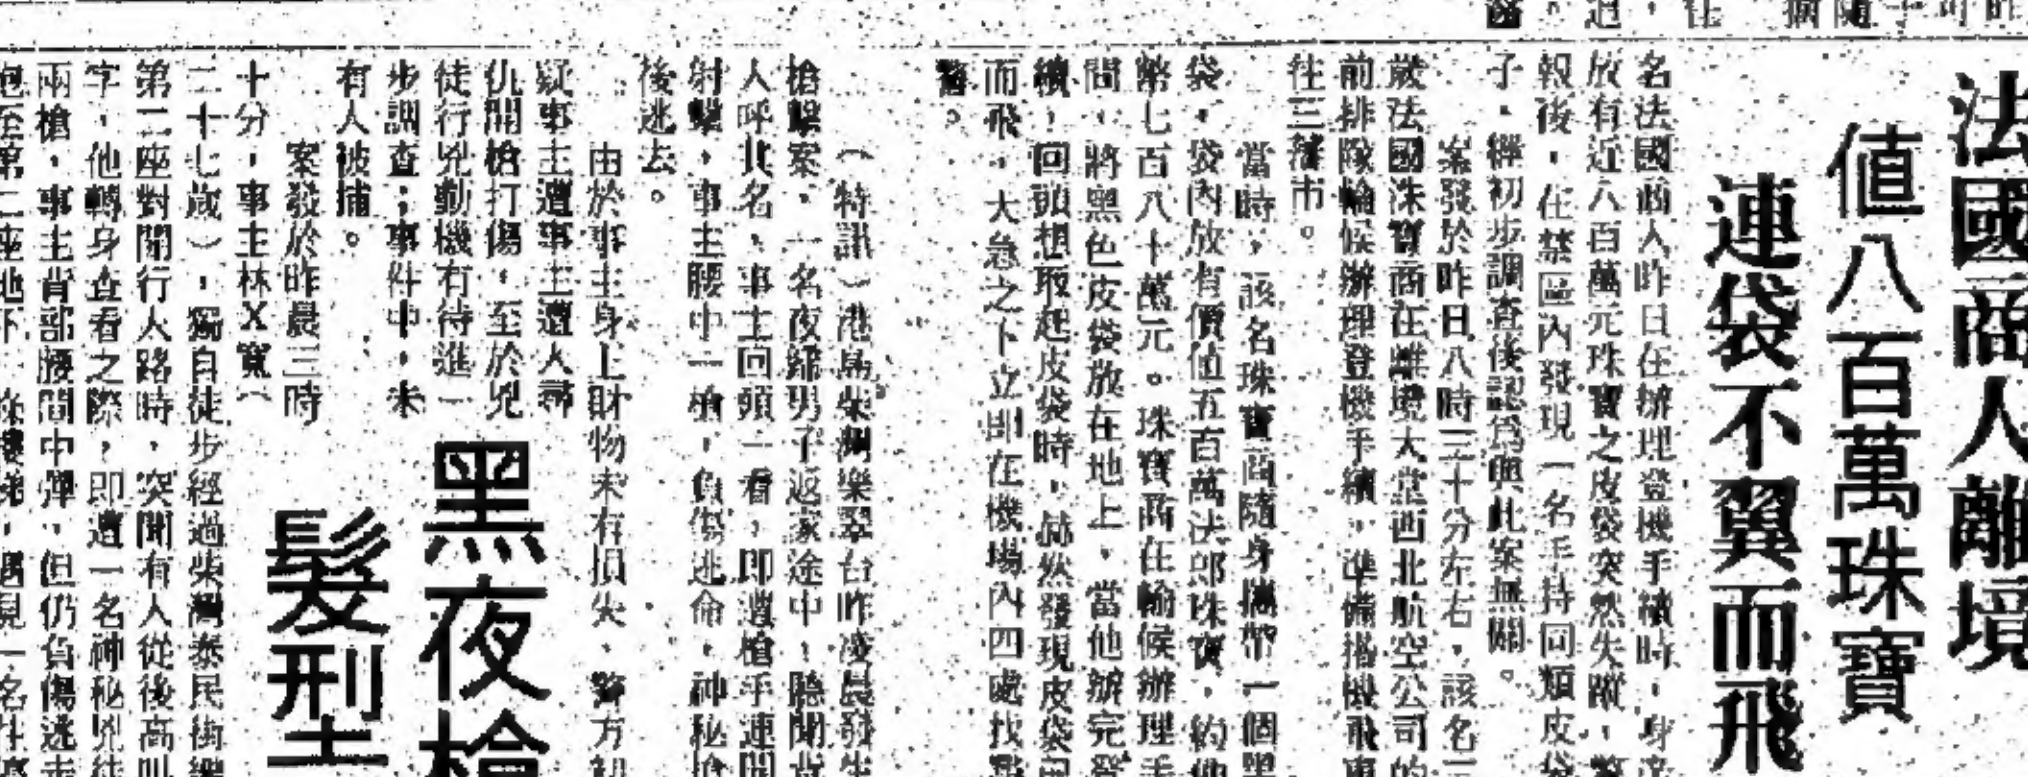 法國商人離境
值八百萬珠寶
連袋不翼而飛
名法國商人昨日在辦理登機手續時，身旁
放有近八百萬元珠寶之皮袋突然失蹤，警
報後，在禁區內發現一名手持同類皮袋
子，經初步調查後認為與此案無關。
案發於昨日八時三十分左右，該名三
歲法國珠寶商在離境大堂西北航空公司的
前排隊輪候辦理登機手續，準備搭機飛東
往三藩市。
當時，該名珠寶商隨身攜帶一個黑
袋，袋內放有價值五百萬法郎珠寶，約他
幣七百八十萬元。珠寶商在輪候辦理手
間，將黑色皮袋放在地上，當他辦完登
續，回頭想取起皮袋時，赫然發現皮袋
而飛，大急之下立即在機場內四處找尋
警。
（特訊）港島柴灣樂翠台昨凌晨發生
槍擊案，一名夜歸男子返家途中，隱聞背
人呼其名，事主回頭一看，即遭槍手連開
射擊，事主腰中一槍，負傷逃命，神秘槍
後逃去。
由於事主身上財物未有損失，警方初
疑事主遭事主遭人尋
仇開槍打傷，至於兇
徒行兇動機有待進一
步調查；事件中，未
有人被捕。
黑夜槍
髮型
案發於昨晨三時
十分，事主林X寬（
二十七歲），獨自徒步經過柴灣泰民街
第二座對開行人路時，突聞有人從後高叫
字，他轉身查看之際，即遭一名神秘兇徒
兩槍，事主背部腰間中彈，但仍負傷逃走
跑至第二座地下，遇見一名